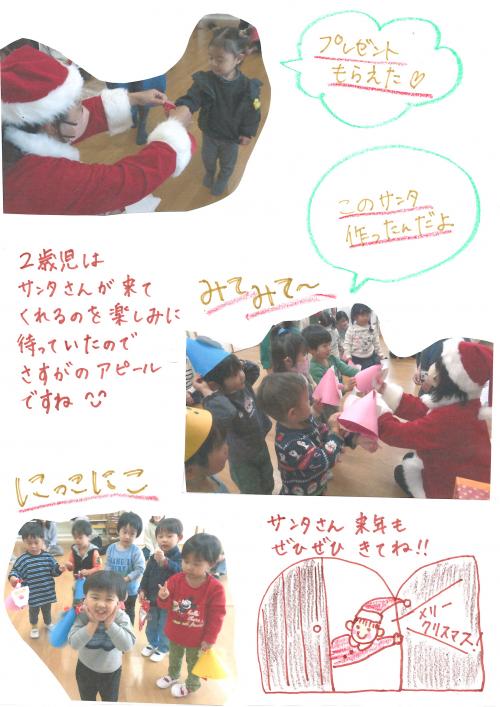 プレゼント
もらえた♡
このサンタ
作ったんだよ
みてみて〜
2歳児は
サンタさんが来て
くれるのを楽しみに
待っていたので
さすがのアピール
ですね
にっこにこ
サンタさん来年も
ぜひぜひきてね!!
メリー
クリスマス!